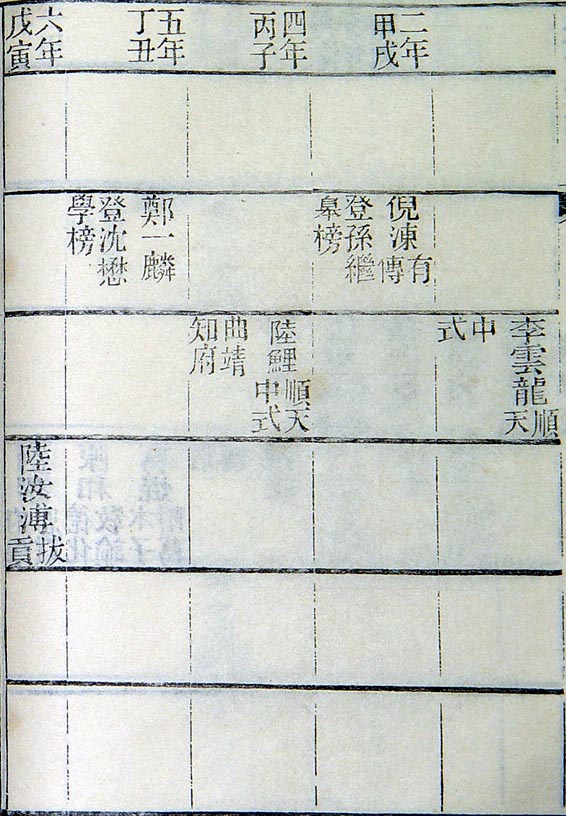 二年
甲戌
四年
丙子
五年
丁丑
六年
戊寅
倪涷有
傳
登孫繼
臯榜
鄭一麟
登沈懋
學榜
李雲龍順
天
中
式
陸鯉順天
中式
曲靖
知府
陸汝溥拔
貢